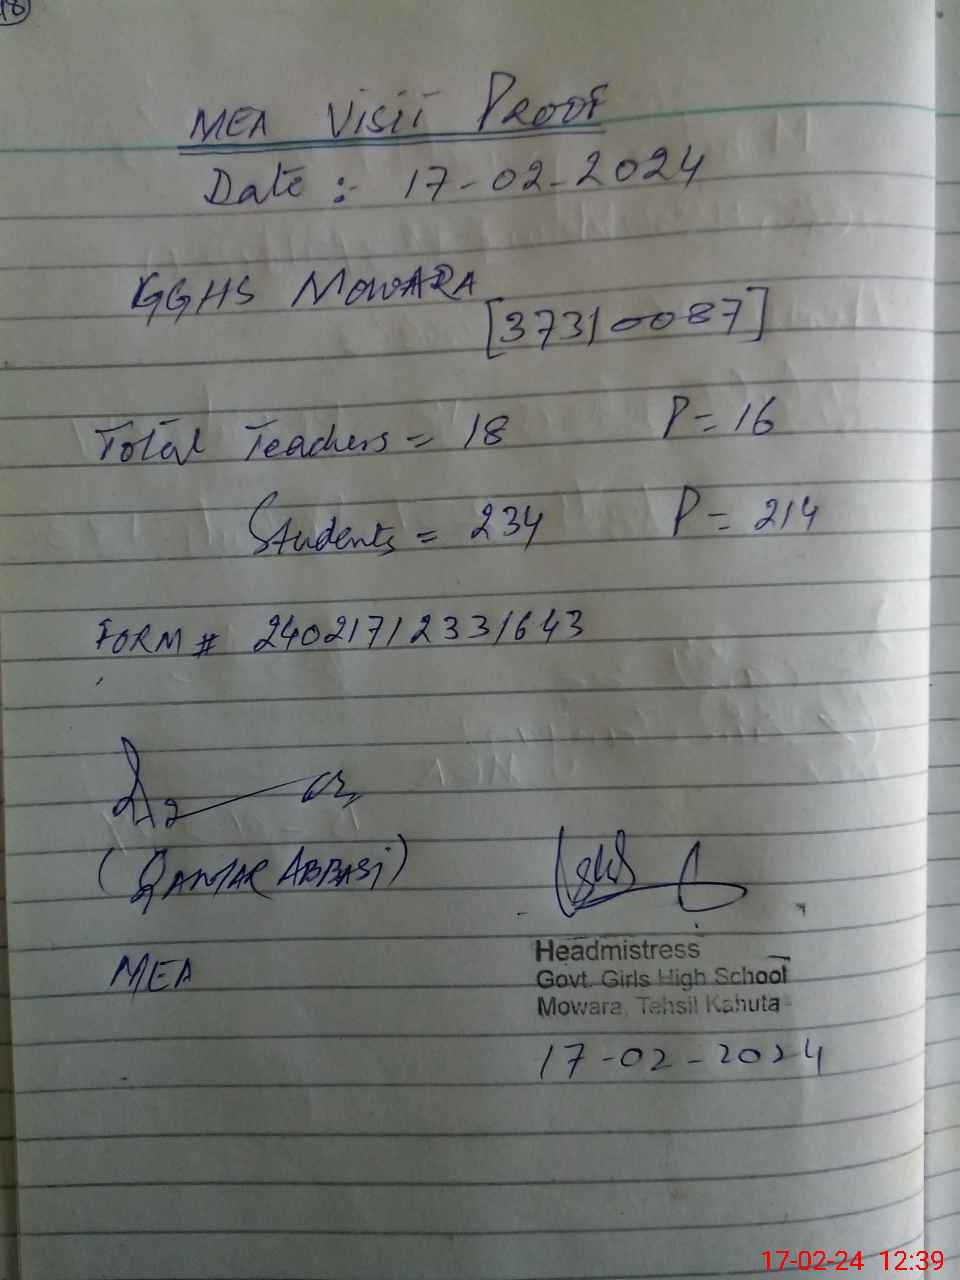 18
MEA Visit Proof
Date :- 17-02-2024
GGHS MOWARA
[37310087]
Total Teachers = 18 P = 16
Students = 234 P = 214
FORM # 24021712331643
(QAMAR ABBASi)
MEA
Headmistress
Govt. Girls High School
Mowara, Tehsil Kahuta
17-02-2024
17-02-24 12:39